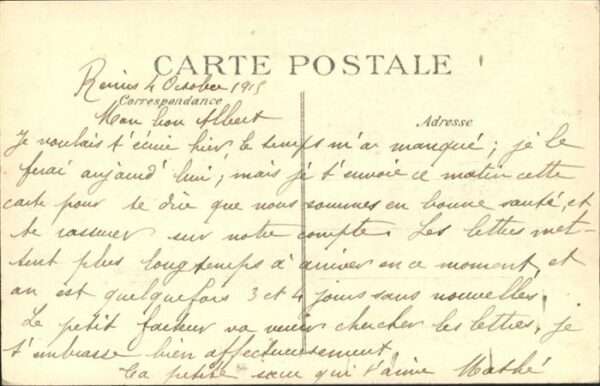 CARTE POSTALE
Reims 4 Octobre 1915
Correspondance
Mon bon Albert
Adresse
Je voulais t'écrire hier le temps m'a manqué; je le
ferai aujourd'hui; mais je t'envoie ce matin cette
carte pour te dire que nous sommes en bonne santé, et
te rassurer sur notre compte. Les lettres met-
tent plus longtemps à arriver en ce moment, et
on est quelquefois 3 et 4 jours sans nouvelles.
Le petit facteur va venir chercher les lettres, je
t'embrasse bien affectueusement
Ta petite sœur qui t'aime Mathé